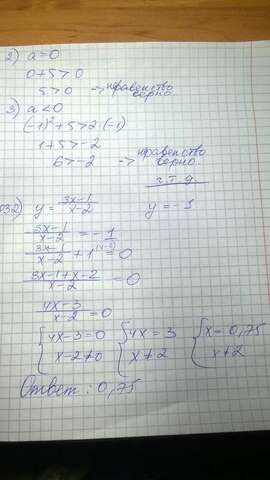 2) a=0
0+5>0
5>0 → неравенство верно.
3) a<0
(-1)²+5>2·(-1)
1+5>-2
6>-2 → неравенство верно.
ч.т.д
932) y=3x-1/x-2 y=-1
3x-1/x-2=-1
3x-1/x-2+1^(x-2)=0
3x-1+x-2/x-2=0
4x-3/x-2=0
{4x-3=0 {4x=3 {x=0,75
{x-2≠0 {x≠2 {x≠2
Ответ: 0,75